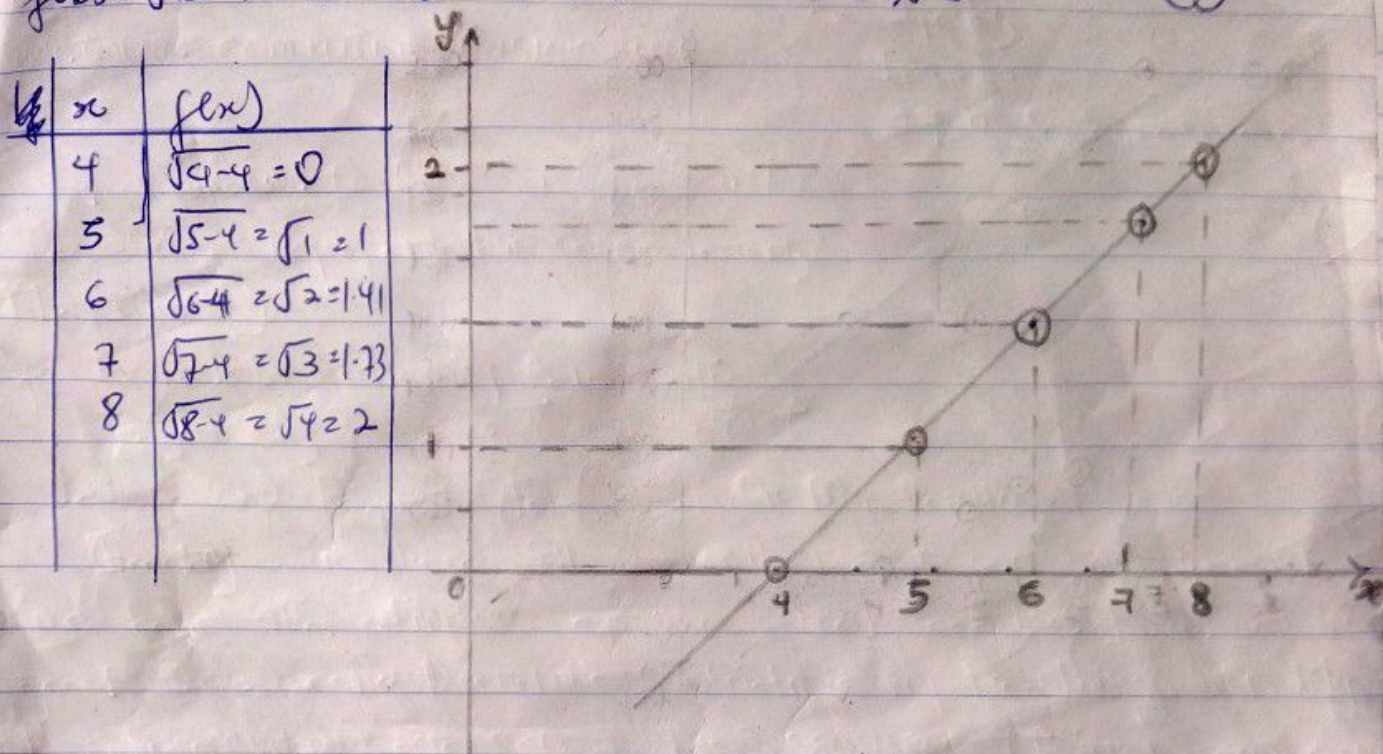 y
x f(x)
4 √4-4 = 0
5 √5-4 = √1 = 1
6 √6-4 = √2 = 1.41
7 √7-4 = √3 = 1.73
8 √8-4 = √4 = 2
2
1
0 4 5 6 7 8 x